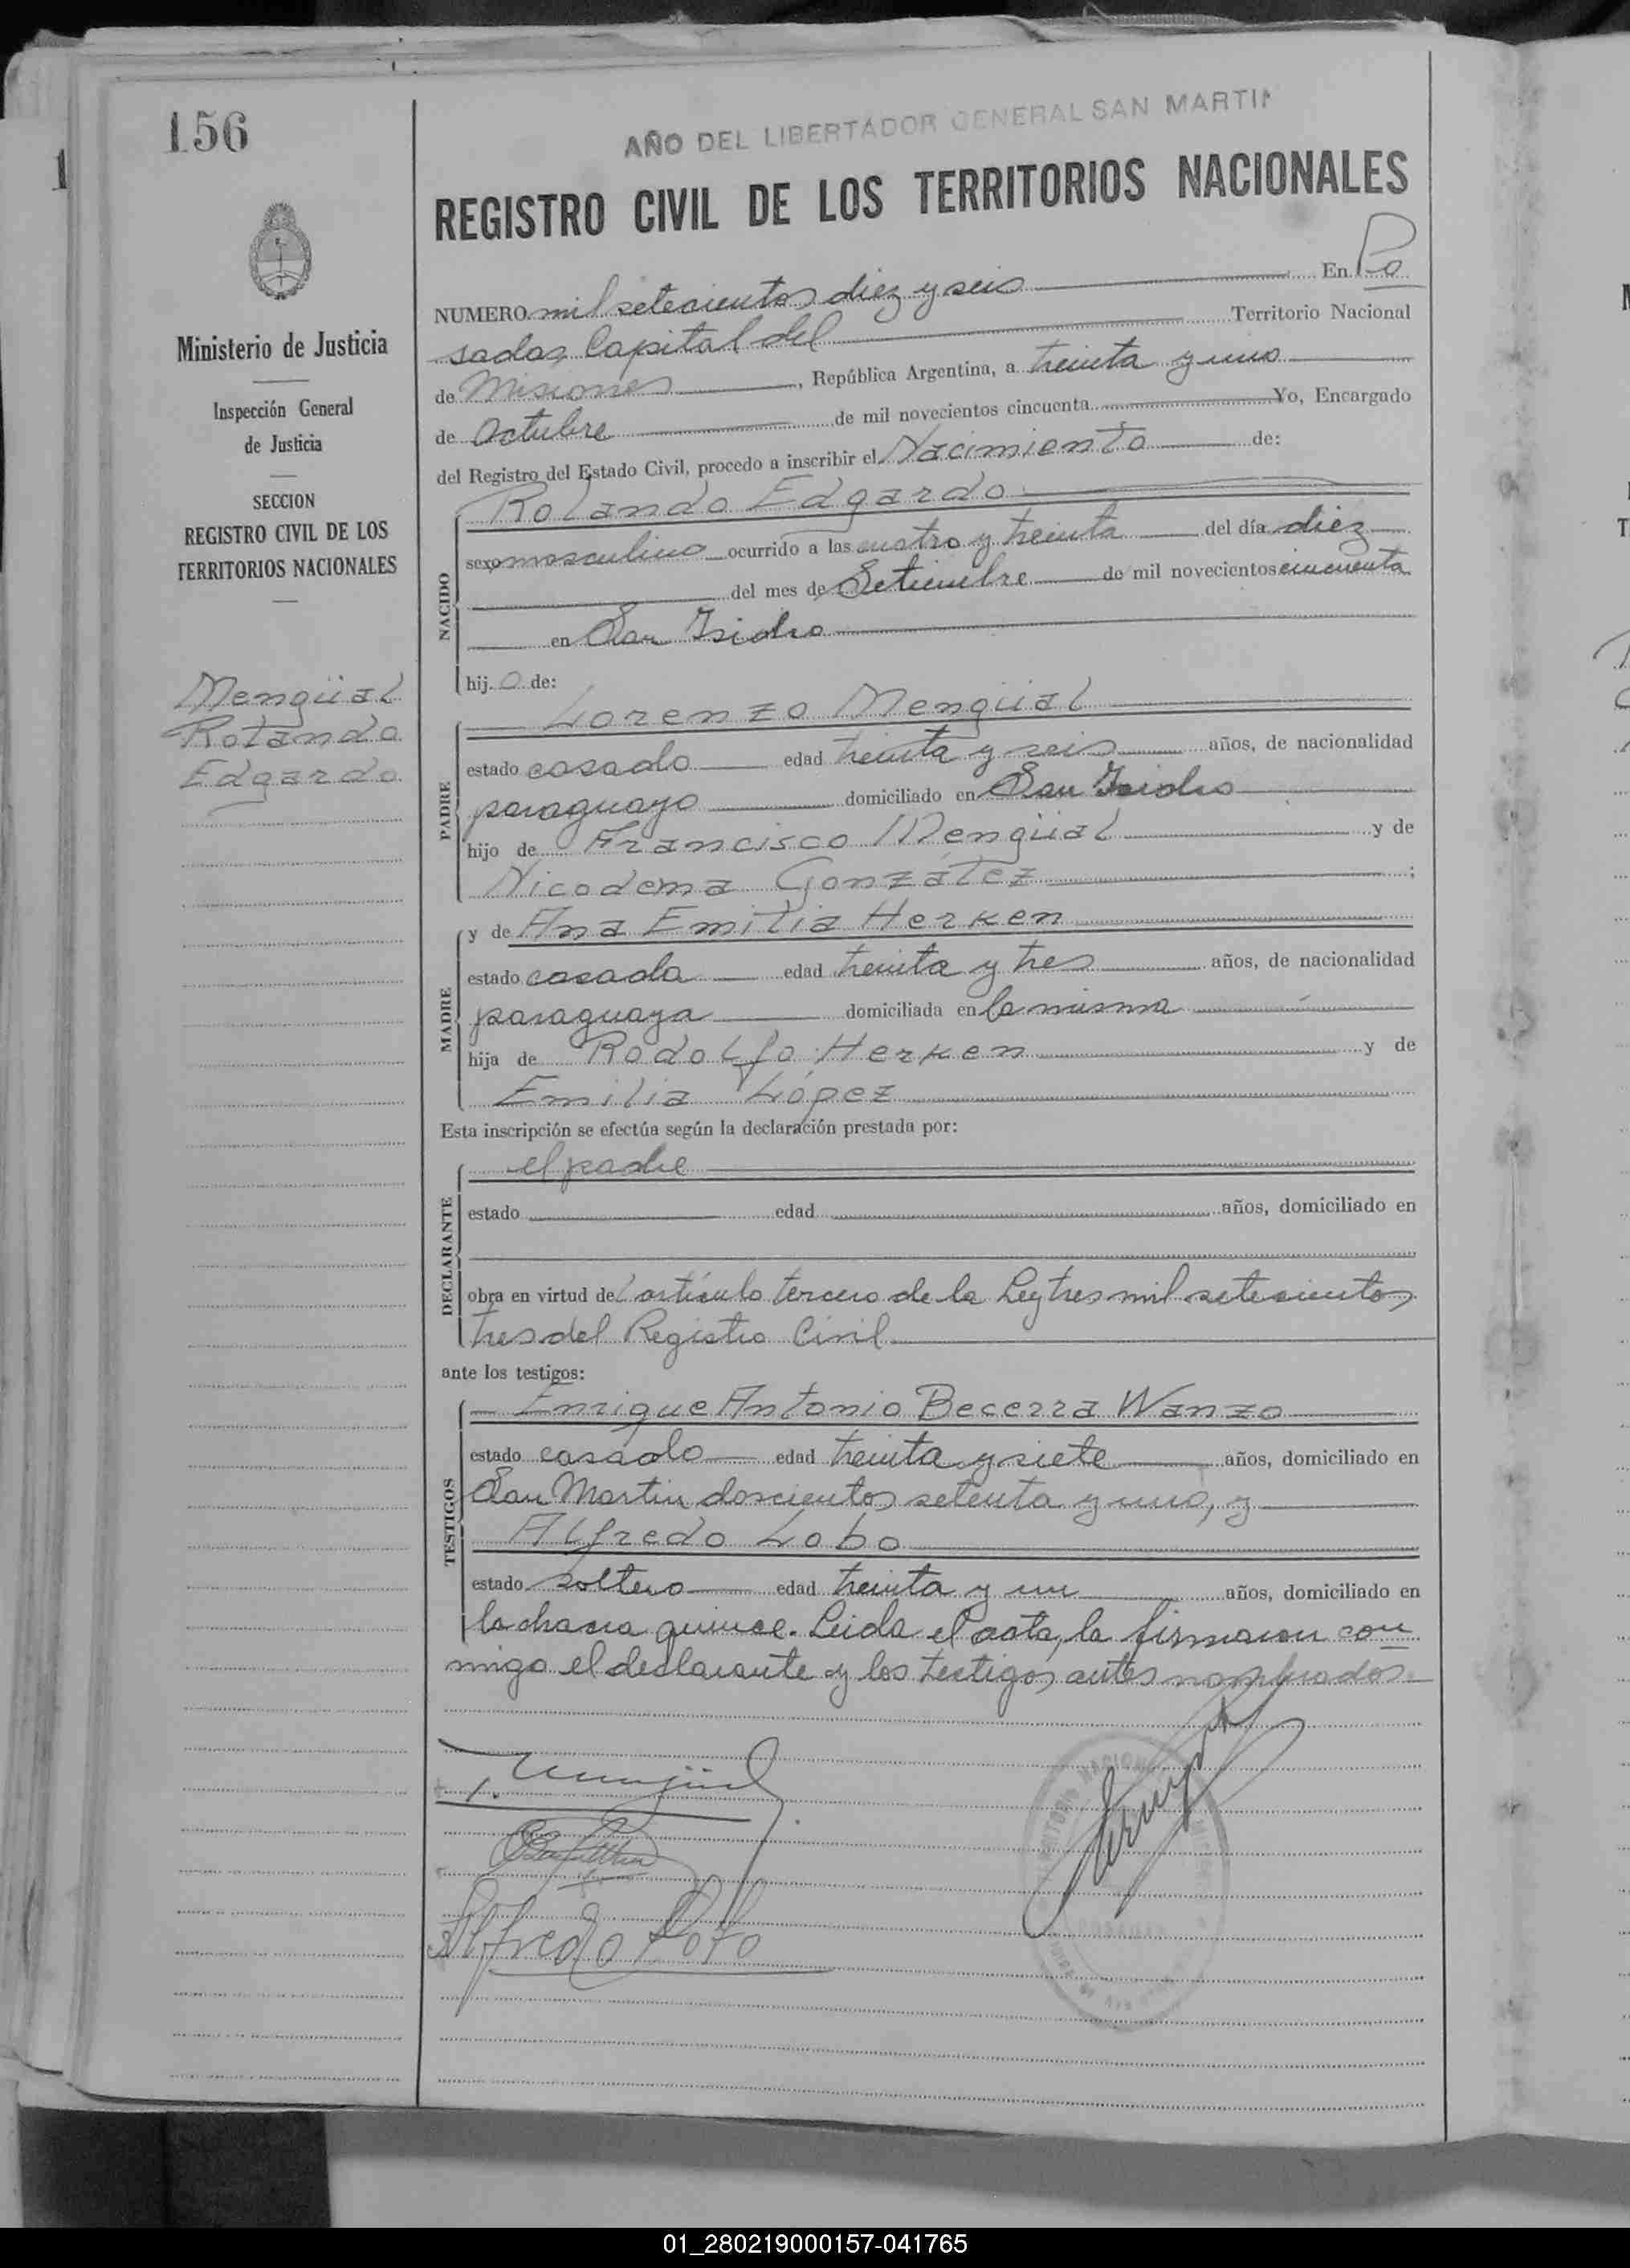 156
AÑO DEL LIBERTADOR GENERAL SAN MARTIN
REGISTRO CIVIL DE LOS TERRITORIOS NACIONALES
Ministerio de Justicia
Inspección General
de Justicia
SECCION
REGISTRO CIVIL DE LOS
TERRITORIOS NACIONALES
Mengüal
Rolando
Edgardo
NUMERO mil setecientos diez y seis En Po
sadas Capital del Territorio Nacional
de Misiones, República Argentina, a treinta y uno
de Octubre de mil novecientos cincuenta Yo, Encargado
del Registro del Estado Civil, procedo a inscribir el Nacimiento de:
NACIDO
Rolando Edgardo
sexo masculino ocurrido a las cuatro y treinta del día diez
del mes de Setiembre de mil novecientos cincuenta
en San Isidro
hijo de:
PADRE
Lorenzo Mengüal
estado casado edad treinta y seis años, de nacionalidad
paraguayo domiciliado en San Isidro
hijo de Francisco Mengüal y de
Nicodema González;
MADRE
y de Ana Emilia Herken
estado casada edad treinta y tres años, de nacionalidad
paraguaya domiciliada en la misma
hija de Rodolfo Herken y de
Emilia López
Esta inscripción se efectúa según la declaración prestada por:
DECLARANTE
el padre
estado edad años, domiciliado en
obra en virtud del artículo tercero de la Ley tres mil setecientos
tres del Registro Civil
ante los testigos:
TESTIGOS
Enrique Antonio Becerra Wanzo
estado casado edad treinta y siete años, domiciliado en
San Martin doscientos setenta y uno, y
Alfredo Lobo
estado soltero edad treinta y un años, domiciliado en
la chacra quince. Leida el acta, la firmaron con
migo el declarante y los testigos antes nombrados
Alfredo Lobo
01_280219000157-041765